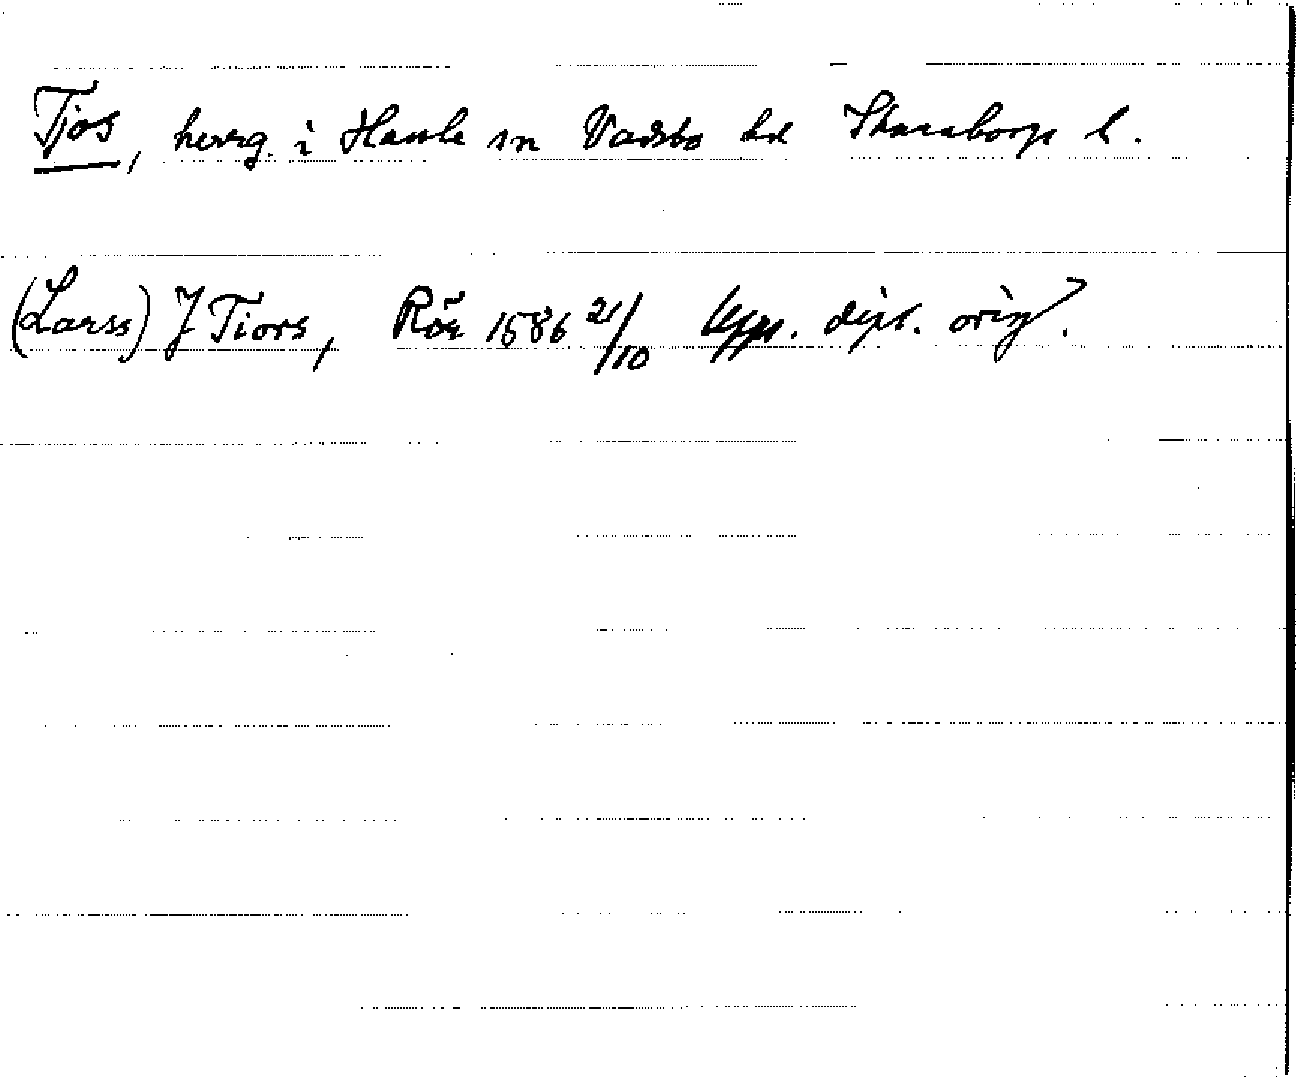 Tjos, herrg. i Hassle sn Vadsbo hd Skaraborgs l.
(Larss) J Tiors, Röö 1586 21/10 Upps. dipl. orig.